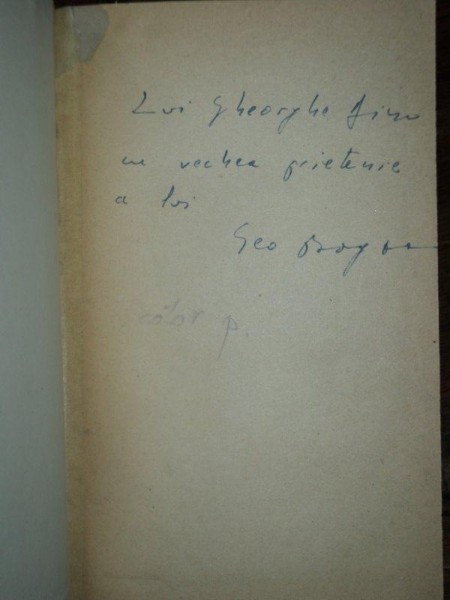 Lui Gheorghe Dinu
cu vechea prietenie
a lui
Geo Bogza
color p.